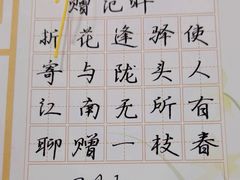 赠范晔
折花逢驿使
寄与陇头人
江南无所有
聊赠一枝春